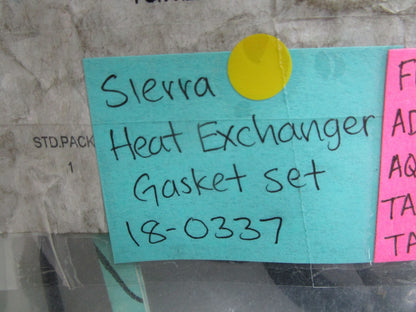 Sierra
Heat Exchanger
Gasket set
18-0337
STD.PACK
1
F
AD
AQ
TA
TA